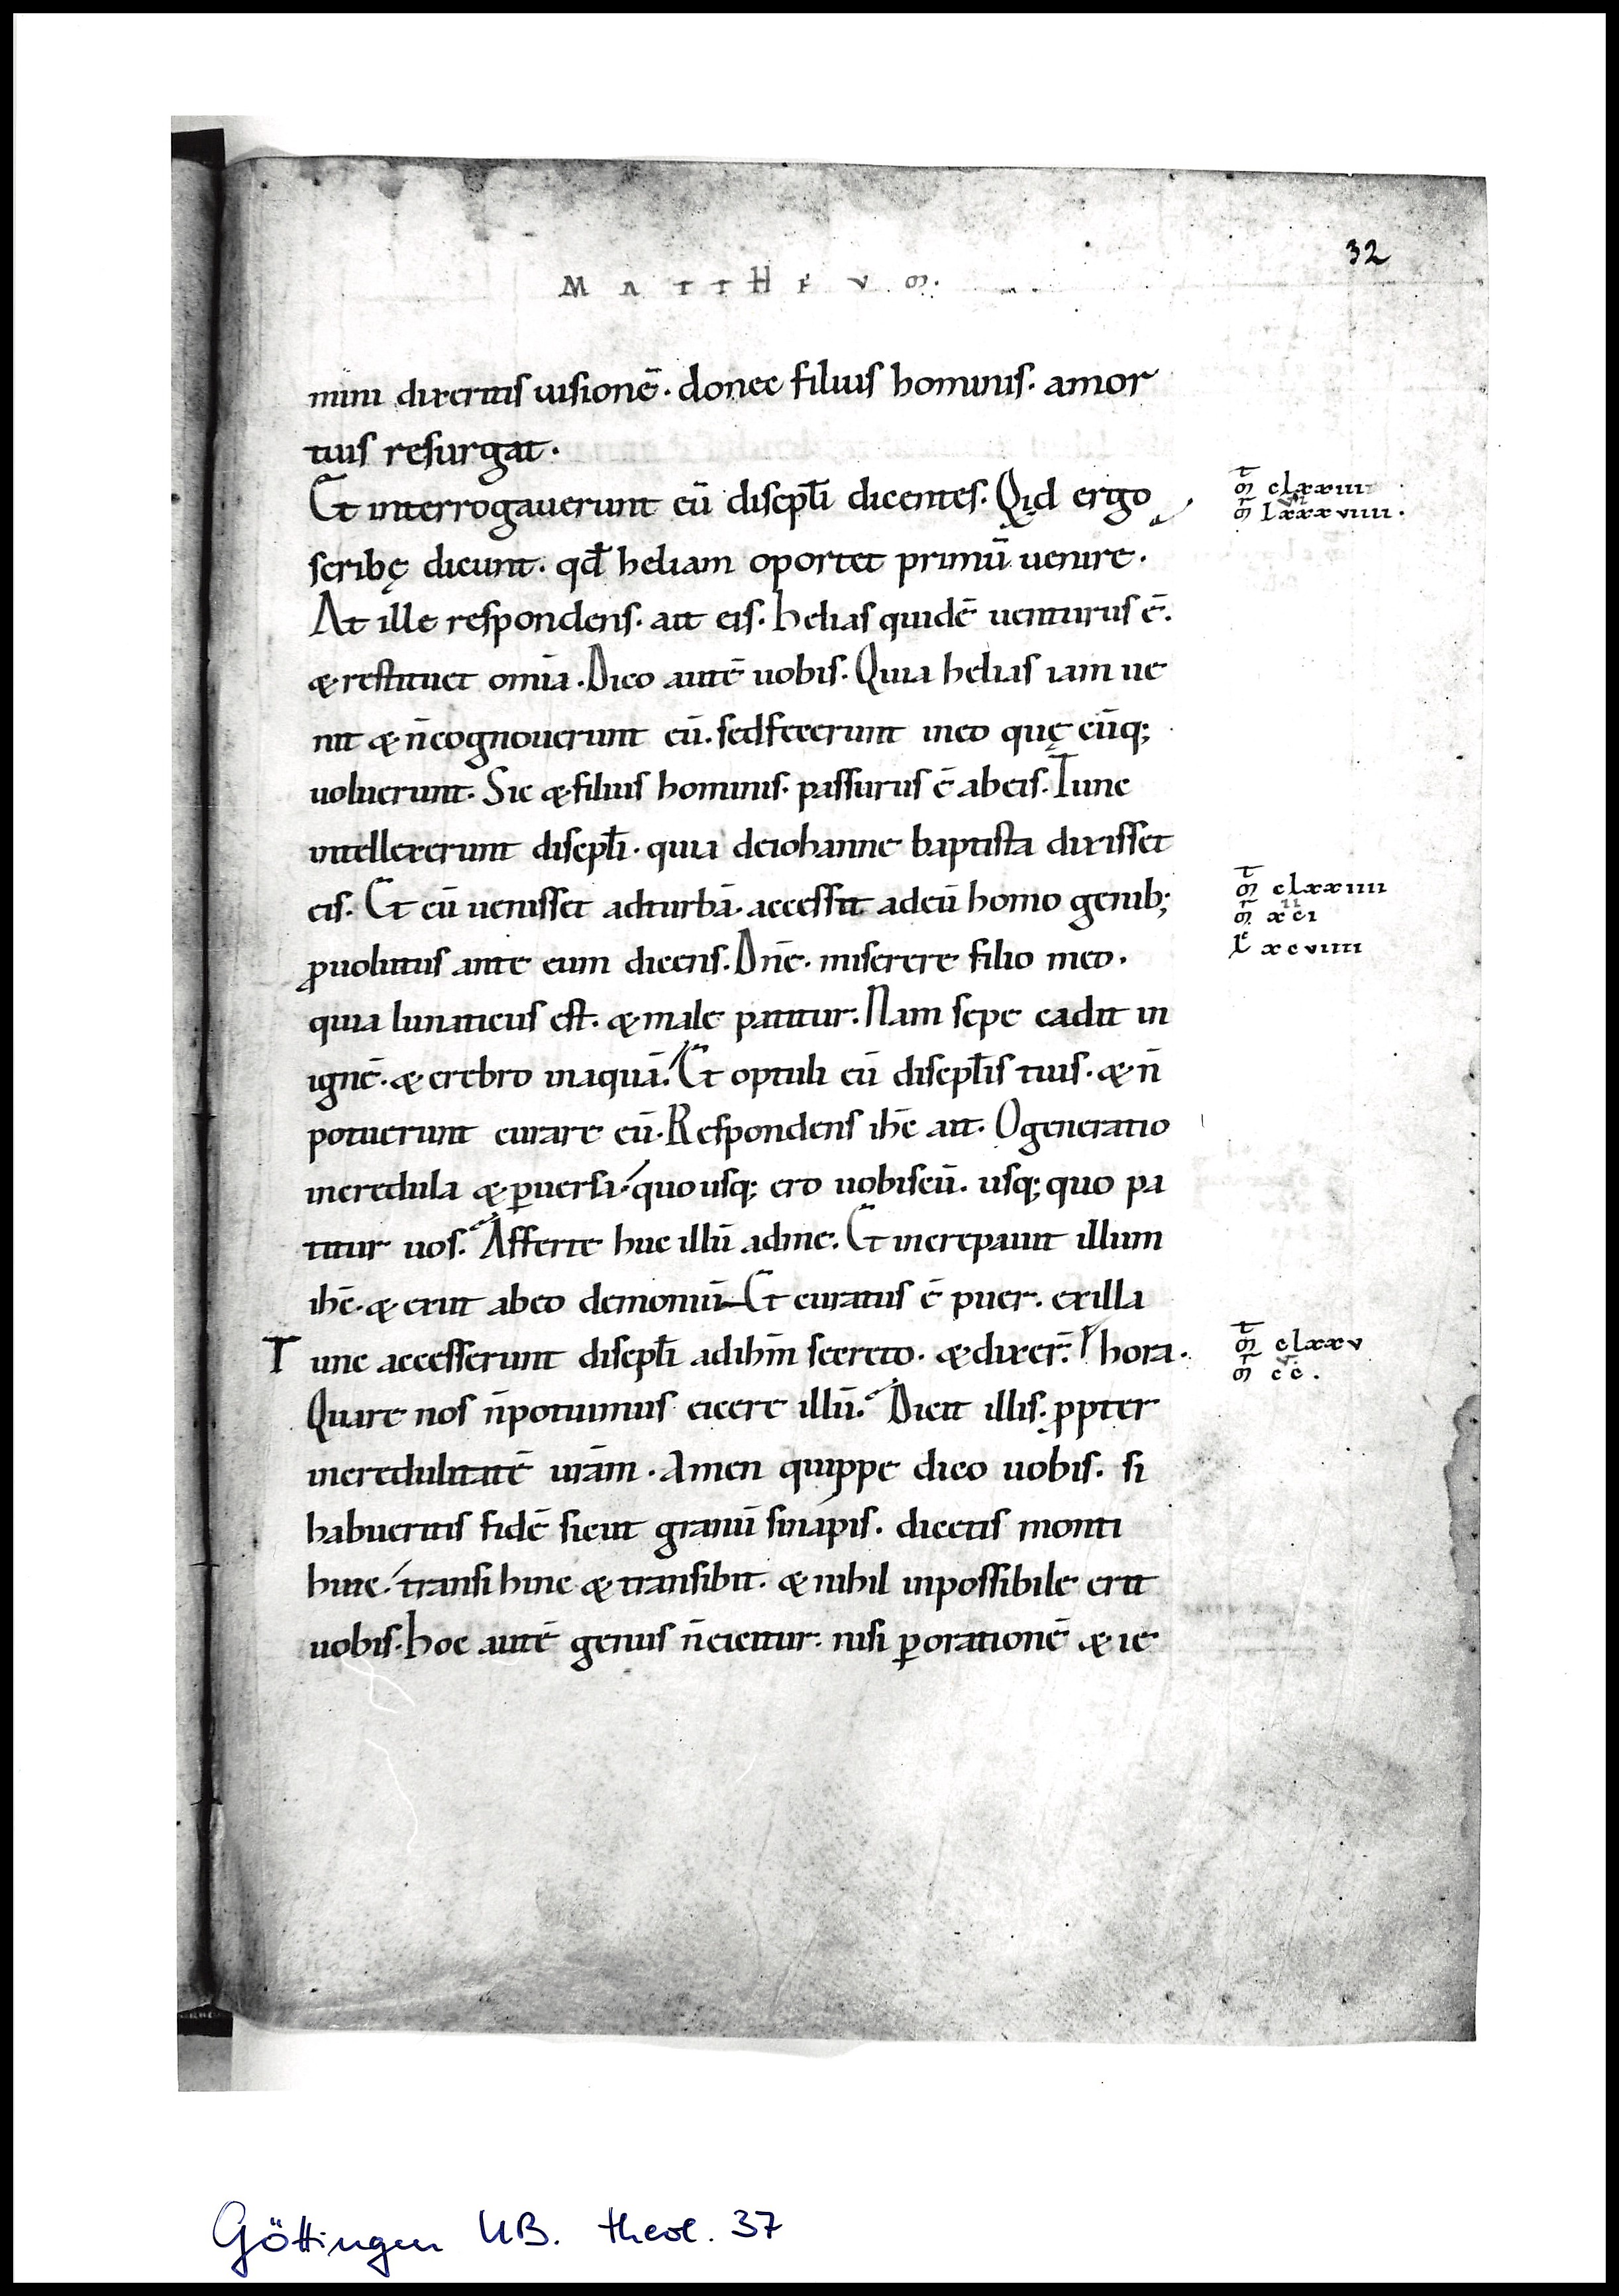 32
MATTHEVS.
mini dixeritis uisionē. donec filius hominis. amor
tuis resurgat.
Et interrogauerunt eū discip̄li dicentes. Qid ergo
m̄ clxxiii
m̄ lxxxviiii.
scribę dicunt. qđ heliam oportet primū uenire.
At ille respondens. ait eis. helias quidē uenturus ē.
& restituet om̄ia. Dico autē uobis. Quia helias iam ue
nit & n̄cognouerunt eū. sedfecerunt ineo quę cūq;
uoluerunt. Sic & filius hominis. passurus ē abeis. Tunc
intellexerunt discepłi. quia deiohanne baptista dixisset
eis. Et cū uenisset adturbā. accessit adeū homo genib;
m̄ clxxiiii
m̄ xci
L xcviiii
ꝓuolutus ante eum dicens. Dn̄e. miserere filio meo.
quia lunaticus est. & male patitur. Nam sepe cadit in
ignē. & crebro inaquā. Et optuli eū discepłis tuis. & n̄
potuerunt curare eū. Respondens ihc̄ ait. Ogeneratio
incredula & ꝑuersa. quousq; ero uobiscū. usq; quo pa
titur uos. Afferte huc illū adme. Et increpauit illum
ihc̄. & exiit abeo demoniū Et curatus ē puer. exilla
Tunc accesserunt discepłi adihm̄ secreto. & dixer̄. hora.
m̄ clxxv
m̄ cc.
Quare nos n̄potuimus eicere illū. Dicit illis. ꝓpter
incredulitatē ur̄am. Amen quippe dico uobis. si
habueritis fidē sicut granū sinapis. dicetis monti
huic. transi hinc & transibit. & nihil inpossibile erit
uobis. hoc autē genus n̄eicitur. nisi ꝑorationē & ie
Göttingen UB. theol. 37